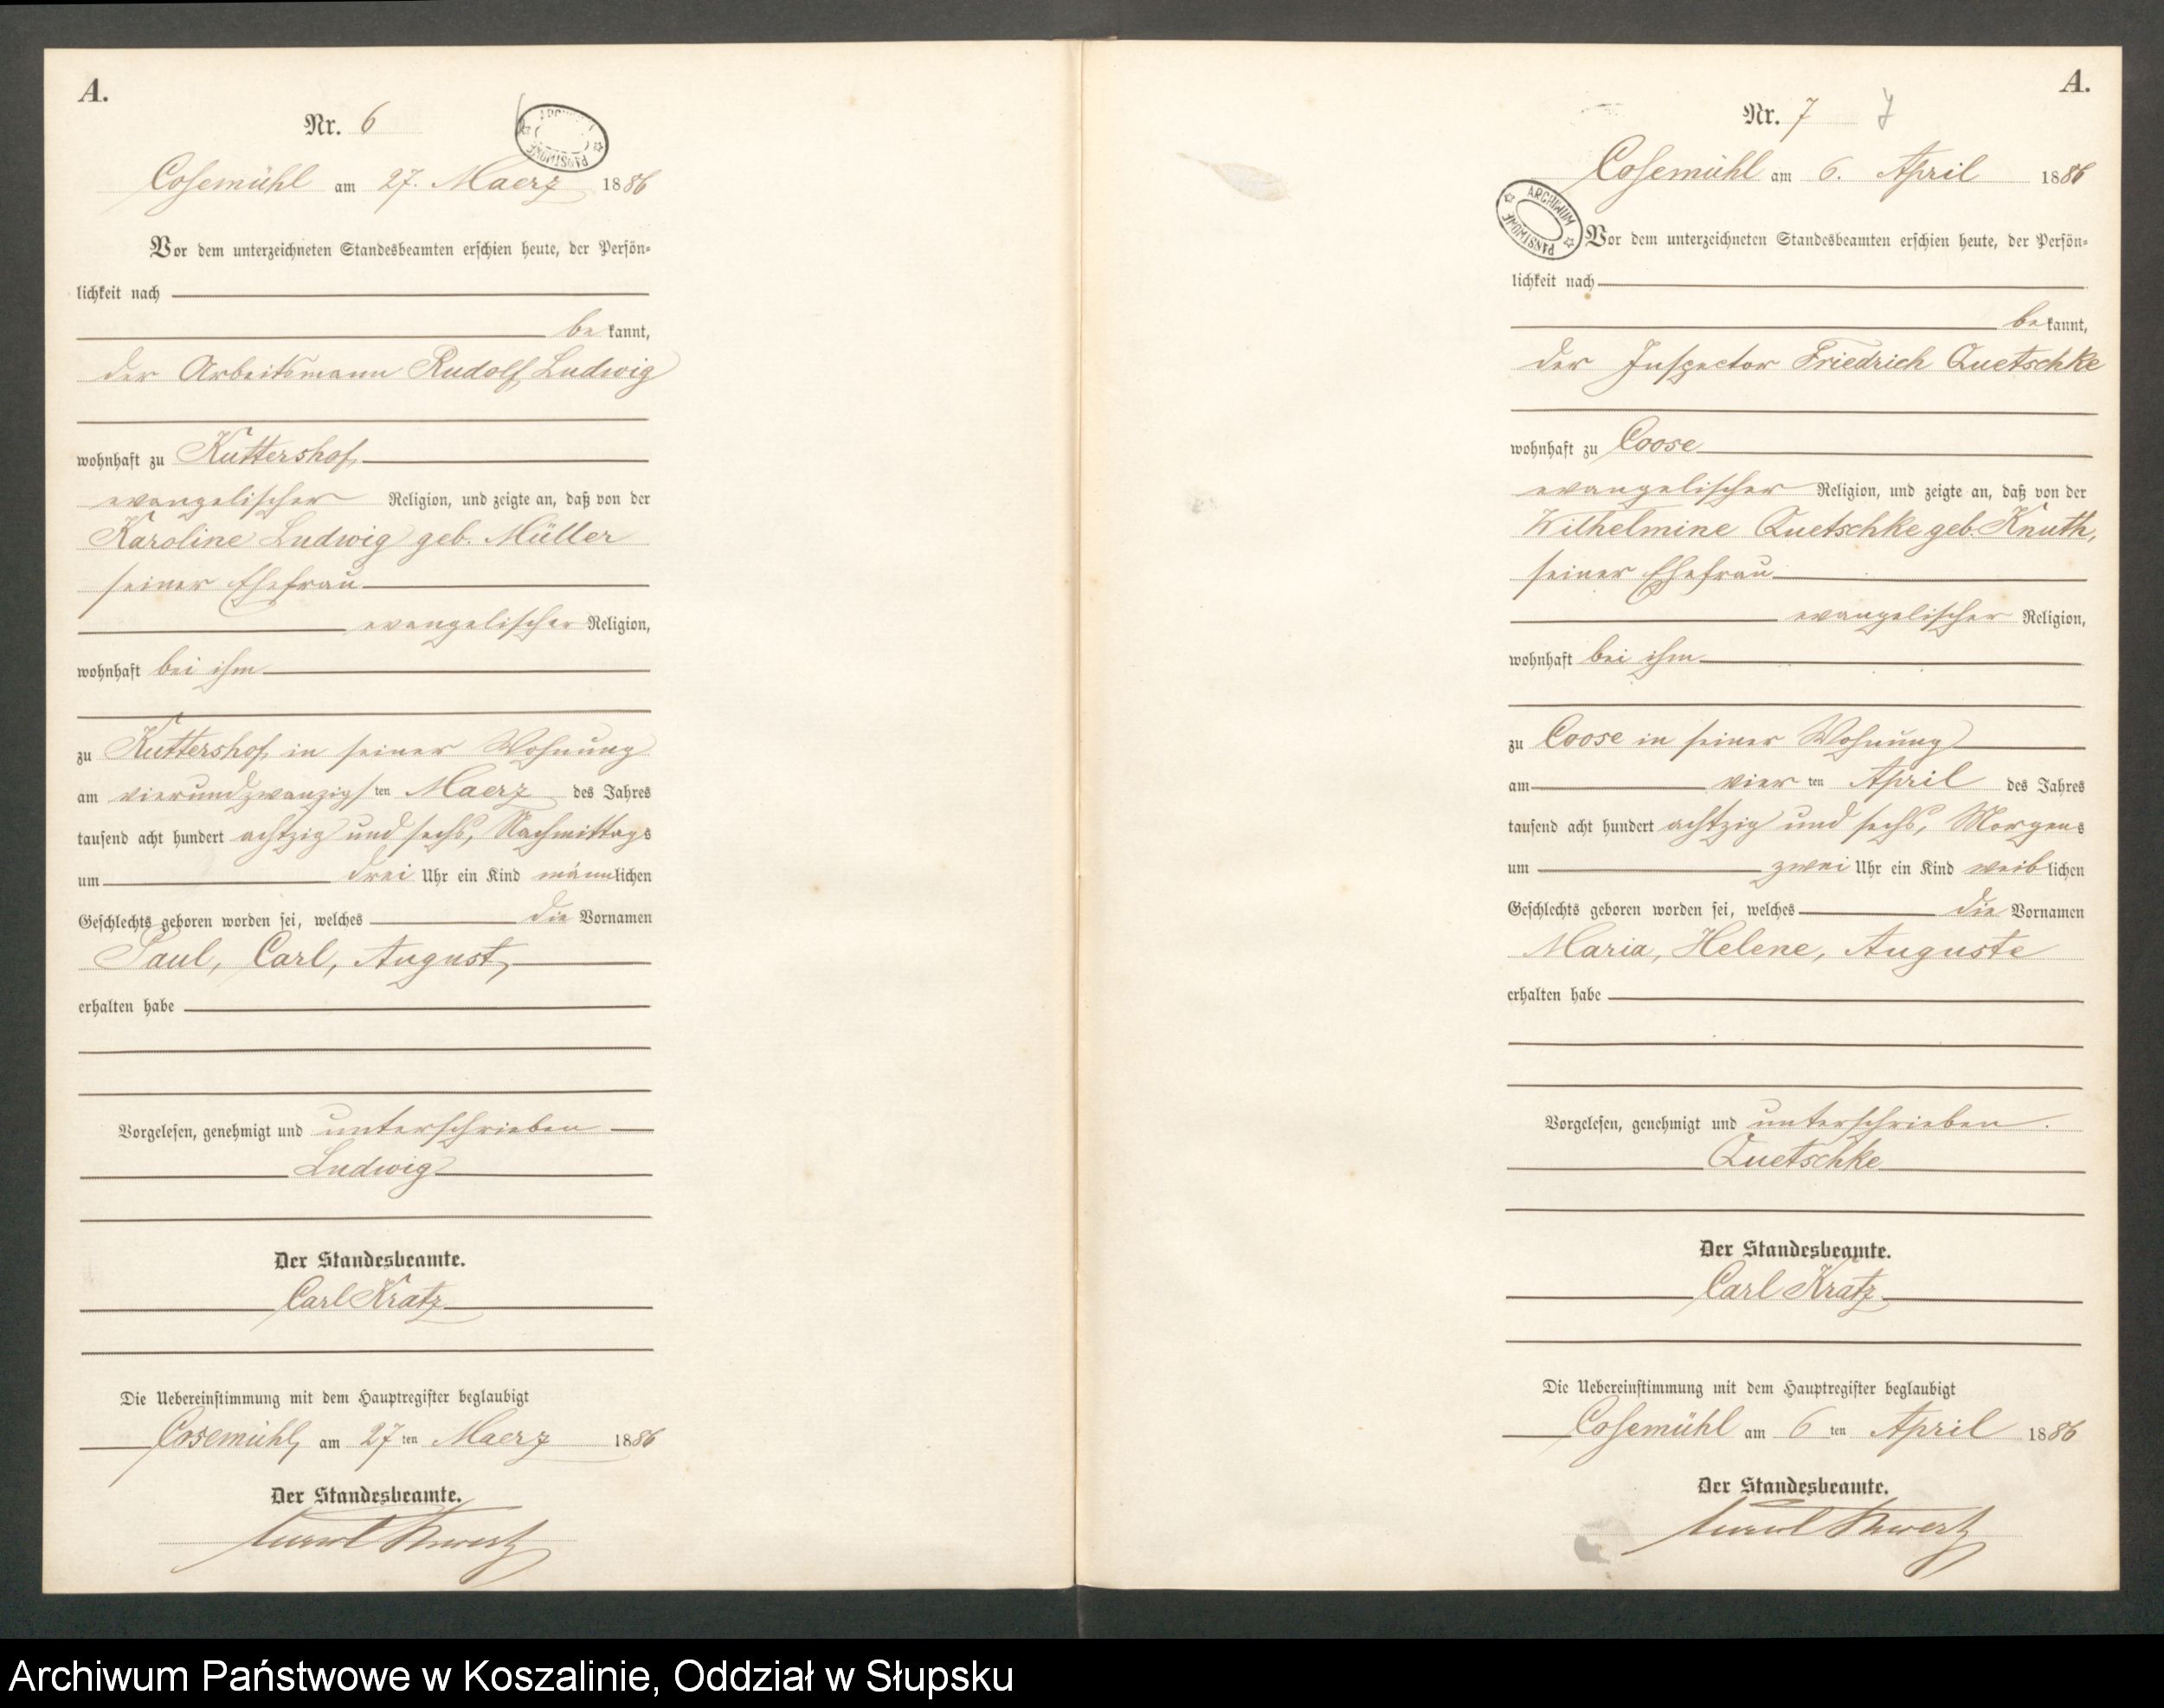 A.
Nr. 6
Cosemühl am 27. Maerz 1886
Vor dem unterzeichneten Standesbeamten erschien heute, der Persön-
lichkeit nach
bekannt,
der Arbeitsmann Rudolf Ludwig
wohnhaft zu Kuttershof
evangelischer Religion, und zeigte an, daß von der
Karoline Ludwig geb. Müller
seiner Ehefrau
evangelischer Religion,
wohnhaft bei ihm
zu Kuttershof in seiner Wohnung
am vierundzwanzigsten Maerz des Jahres
tausend acht hundert achtzig und sechs, Nachmittags
um drei Uhr ein Kind männlichen
Geschlechts geboren worden sei, welches die Vornamen
Paul, Carl, August,
erhalten habe
Vorgelesen, genehmigt und unterschrieben
Ludwig
Der Standesbeamte.
Carl Kratz
Die Uebereinstimmung mit dem Hauptregister beglaubigt
Cosemühl, am 27ten Maerz 1886
Der Standesbeamte.
A.
Nr. 7
7
Cosemühl am 6. April 1886
ARCHIWUM PAŃSTWOWE
Vor dem unterzeichneten Standesbeamten erschien heute, der Persön-
lichkeit nach
bekannt,
der Inspector Friedrich Quetschke
wohnhaft zu Coose
evangelischer Religion, und zeigte an, daß von der
Wilhelmine Quetschke geb. Knuth,
seiner Ehefrau
evangelischer Religion,
wohnhaft bei ihm
zu Coose in seiner Wohnung
am vier ten April des Jahres
tausend acht hundert achtzig und sechs, Morgens
um zwei Uhr ein Kind weiblichen
Geschlechts geboren worden sei, welches die Vornamen
Maria, Helene, Auguste
erhalten habe
Vorgelesen, genehmigt und unterschrieben.
Quetschke
Der Standesbeamte.
Carl Kratz
Die Uebereinstimmung mit dem Hauptregister beglaubigt
Cosemühl am 6 ten April 1886
Der Standesbeamte.
Archiwum Państwowe w Koszalinie, Oddział w Słupsku